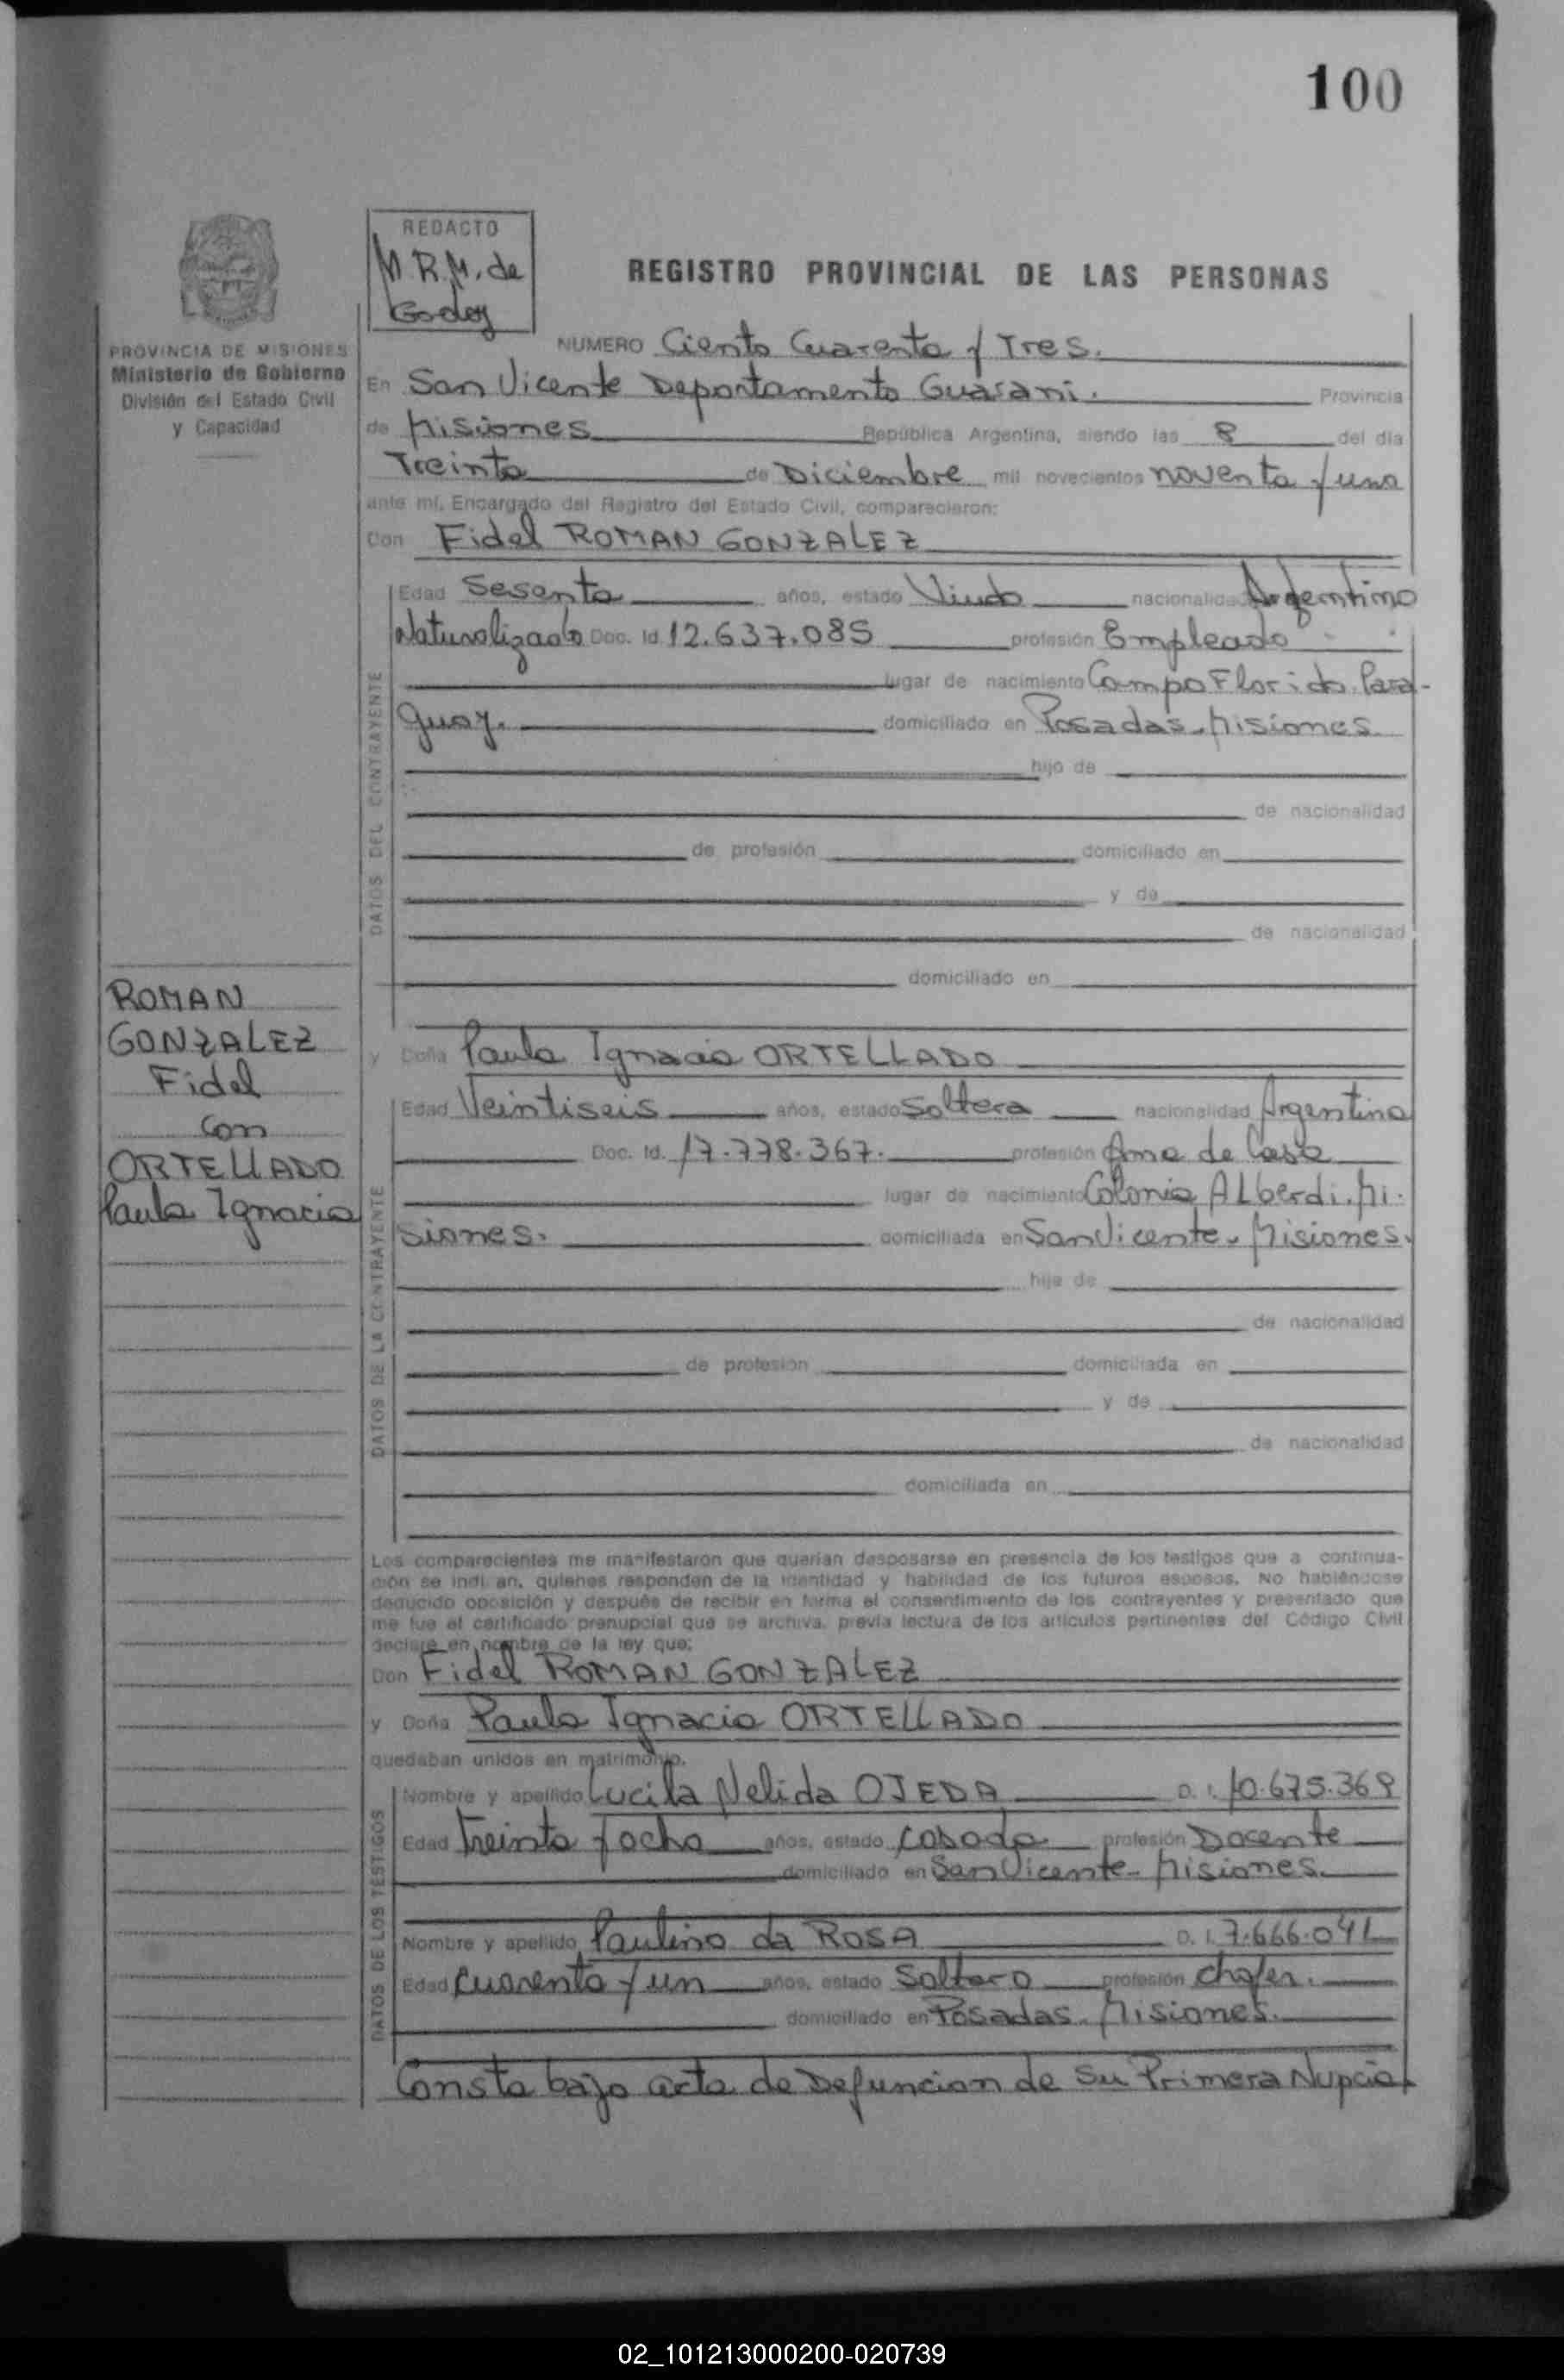 100
REDACTO
M.R.M. de
Godoy
REGISTRO PROVINCIAL DE LAS PERSONAS
PROVINCIA DE MISIONES
Ministerio de Gobierno
División del Estado Civil
y Capacidad
NUMERO Ciento Cuarenta y Tres.
En San Vicente Departamento Guarani. Provincia
de Misiones República Argentina, siendo las 8 del día
Treinta de Diciembre mil novecientos noventa y uno
ante mí, Encargado del Registro del Estado Civil, comparecieron:
Con Fidel ROMAN GONZALEZ
Edad Sesenta años, estado Viudo nacionalidad Argentino
Naturalizado Doc. Id. 12.637.085 profesión Empleado
lugar de nacimiento Campo Florido. Para-
guay. domiciliado en Posadas. Misiones
hijo de
de nacionalidad
de profesión domiciliado en
y de
de nacionalidad
domiciliado en
DATOS DEL CONTRAYENTE
ROMAN
GONZALEZ
Fidel
con
ORTELLADO
Paula Ignacia
y Doña Paula Ignacia ORTELLADO
Edad Veintiseis años, estado Soltera nacionalidad Argentina
Doc. Id. 17.778.367. profesión Ama de Casa
lugar de nacimiento Colonia Alberdi. Mi-
siones. domiciliada en San Vicente. Misiones.
hija de
de nacionalidad
de profesión domiciliada en
y de
de nacionalidad
domiciliada en
DATOS DE LA CONTRAYENTE
Los comparecientes me manifestaron que querían desposarse en presencia de los testigos que a continua-
ción se indi an, quienes responden de la identidad y habilidad de los futuros esposos. No habiéndose
deducido oposición y después de recibir en forma el consentimiento de los contrayentes y presentado que
me fue el certificado prenupcial que se archiva, previa lectura de los artículos pertinentes del Código Civil
declaré en nombre de la ley que:
Don Fidel ROMAN GONZALEZ
y Doña Paula Ignacia ORTELLADO
quedaban unidos en matrimonio.
Nombre y apellido Lucila Nelida OJEDA D. I. 10.675.369
Edad Treinta y ocho años, estado casada profesión Docente
domiciliado en San Vicente- Misiones.
Nombre y apellido Paulino da ROSA D. I. 7.666.041
Edad Cuarenta y un años, estado Soltero profesión chofer.
domiciliado en Posadas. Misiones.
DATOS DE LOS TESTIGOS
Consta bajo acta de Defuncion de Su Primera Nupcia
02_101213000200-020739